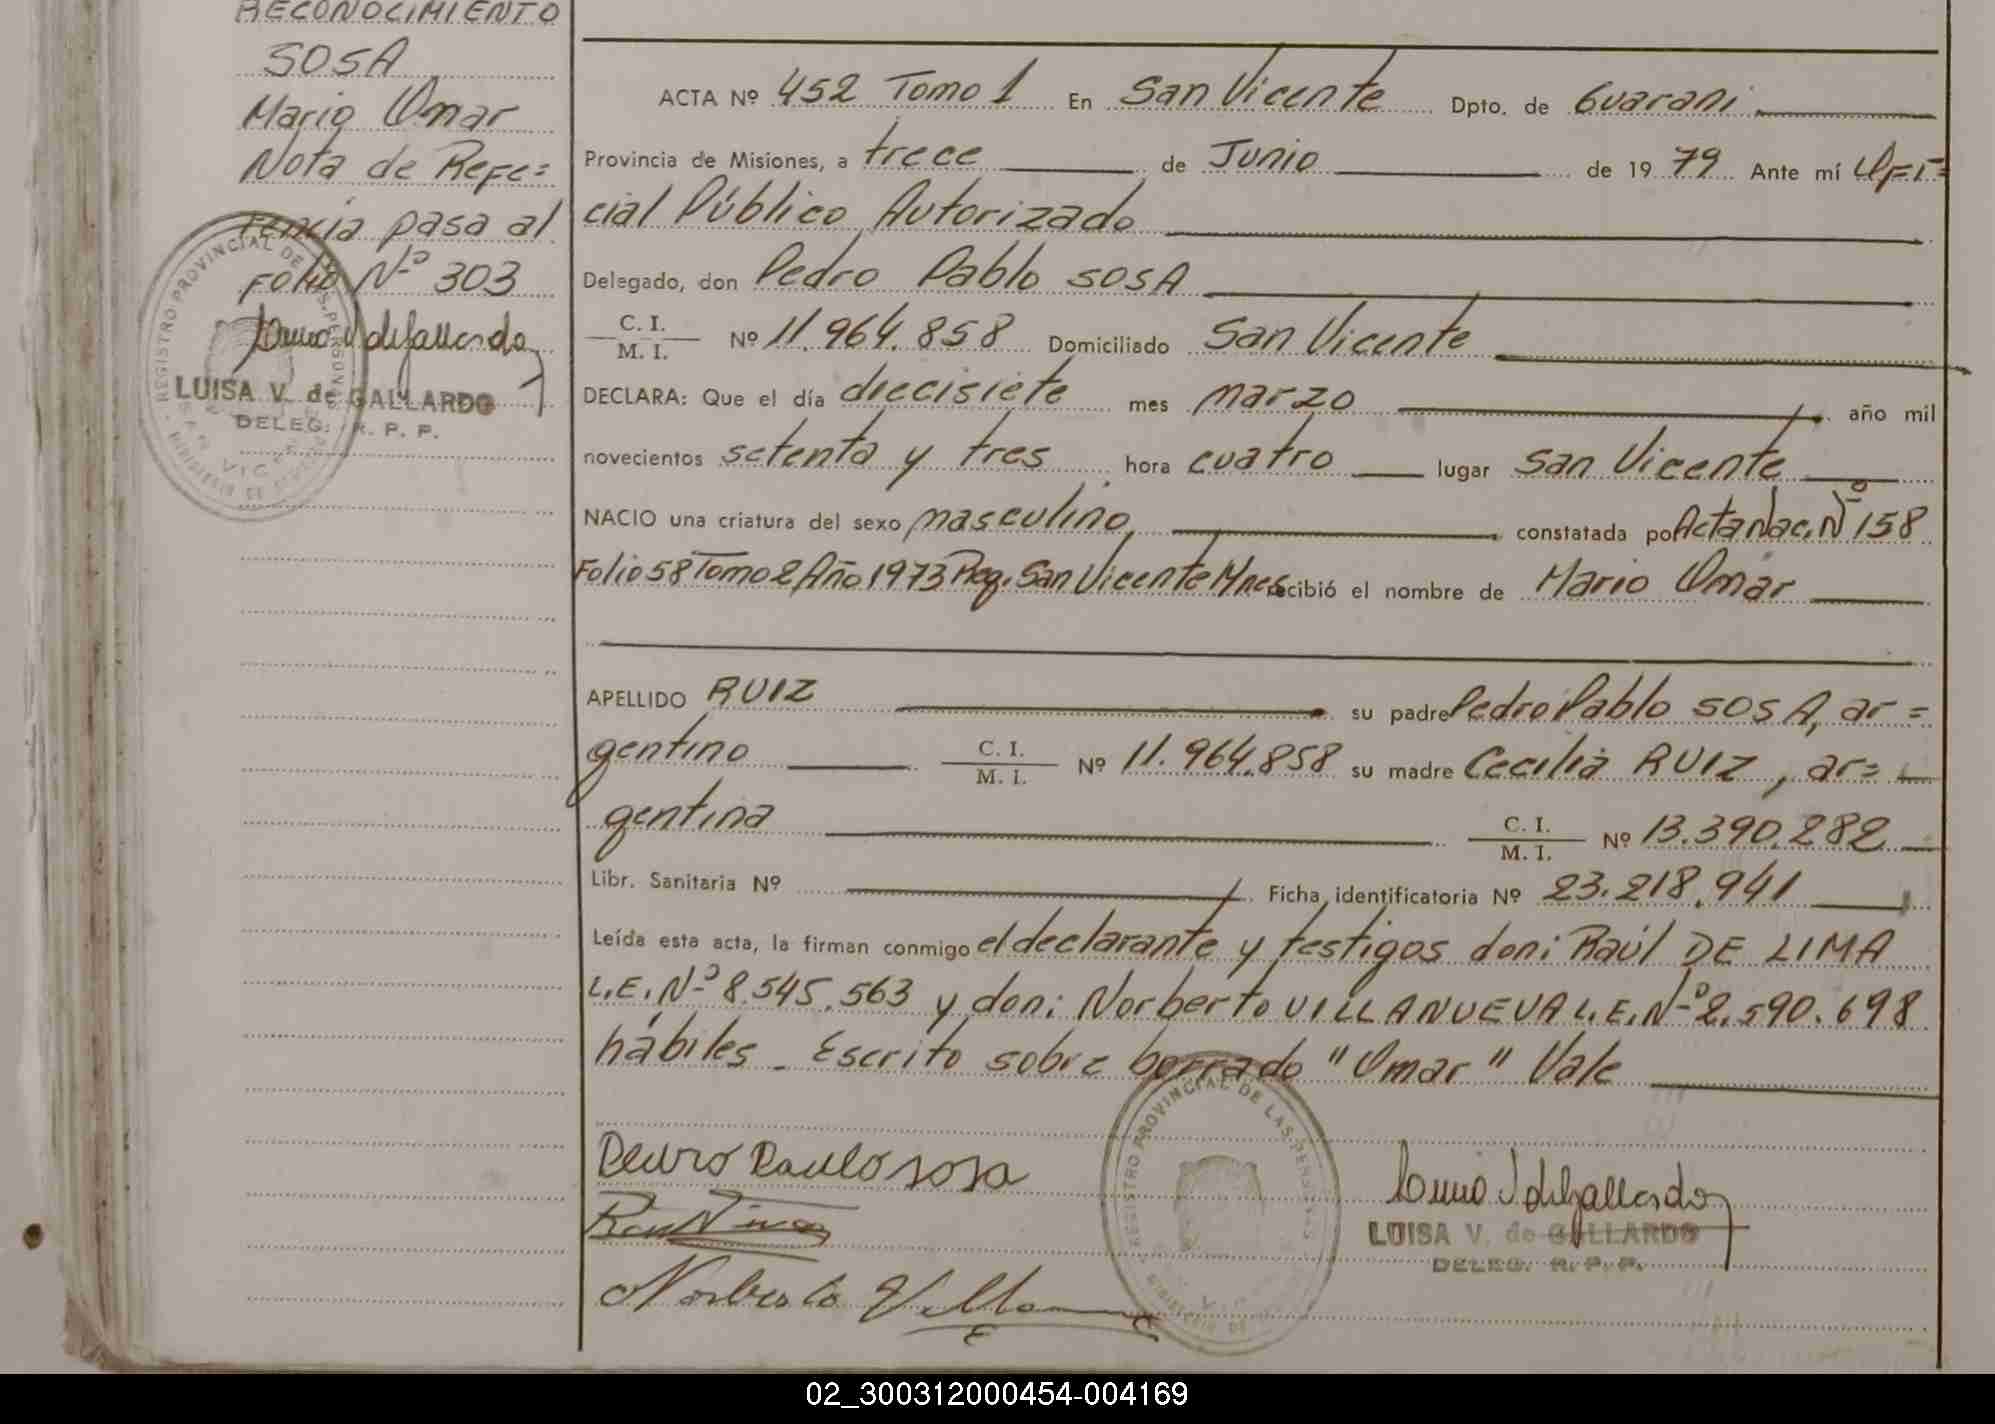 RECONOCIMIENTO
SOSA
Mario Omar
Nota de Refe=
rencia pasa al
Folio Nº 303
LUISA V. de GALLARDO
DELEG. R. P. P.
ACTA Nº 452 Tomo 1 En San Vicente Dpto. de Guarani
Provincia de Misiones, a trece de Junio de 19 79 Ante mí Ofi=
cial Público Autorizado
Delegado, don Pedro Pablo SOSA
C. I. / M. I. Nº 11.964.858 Domiciliado San Vicente
DECLARA: Que el día diecisiete mes marzo año mil
novecientos setenta y tres hora cuatro lugar San Vicente
NACIO una criatura del sexo masculino, constatada por Acta Nac. Nº 158
Folio 58 Tomo 2, Año 1973 Reg. San Vicente Mnes recibió el nombre de Mario Omar
APELLIDO RUIZ su padre Pedro Pablo SOSA, ar=
gentino C. I. / M. I. Nº 11.964.858 su madre Cecilia RUIZ, ar=
gentina C. I. / M. I. Nº 13.390.282
Libr. Sanitaria Nº Ficha identificatoria Nº 23.218.941
Leída esta acta, la firman conmigo el declarante y testigos don: Raúl DE LIMA
L.E. Nº 8.545.563 y don: Norberto VILLANUEVA L.E. Nº 2.590.698
hábiles - Escrito sobre borrado "Omar" Vale
REGISTRO PROVINCIAL DE LAS PERSONAS
LUISA V. de GALLARDO
DELEG. R. P. P.
02_300312000454-004169